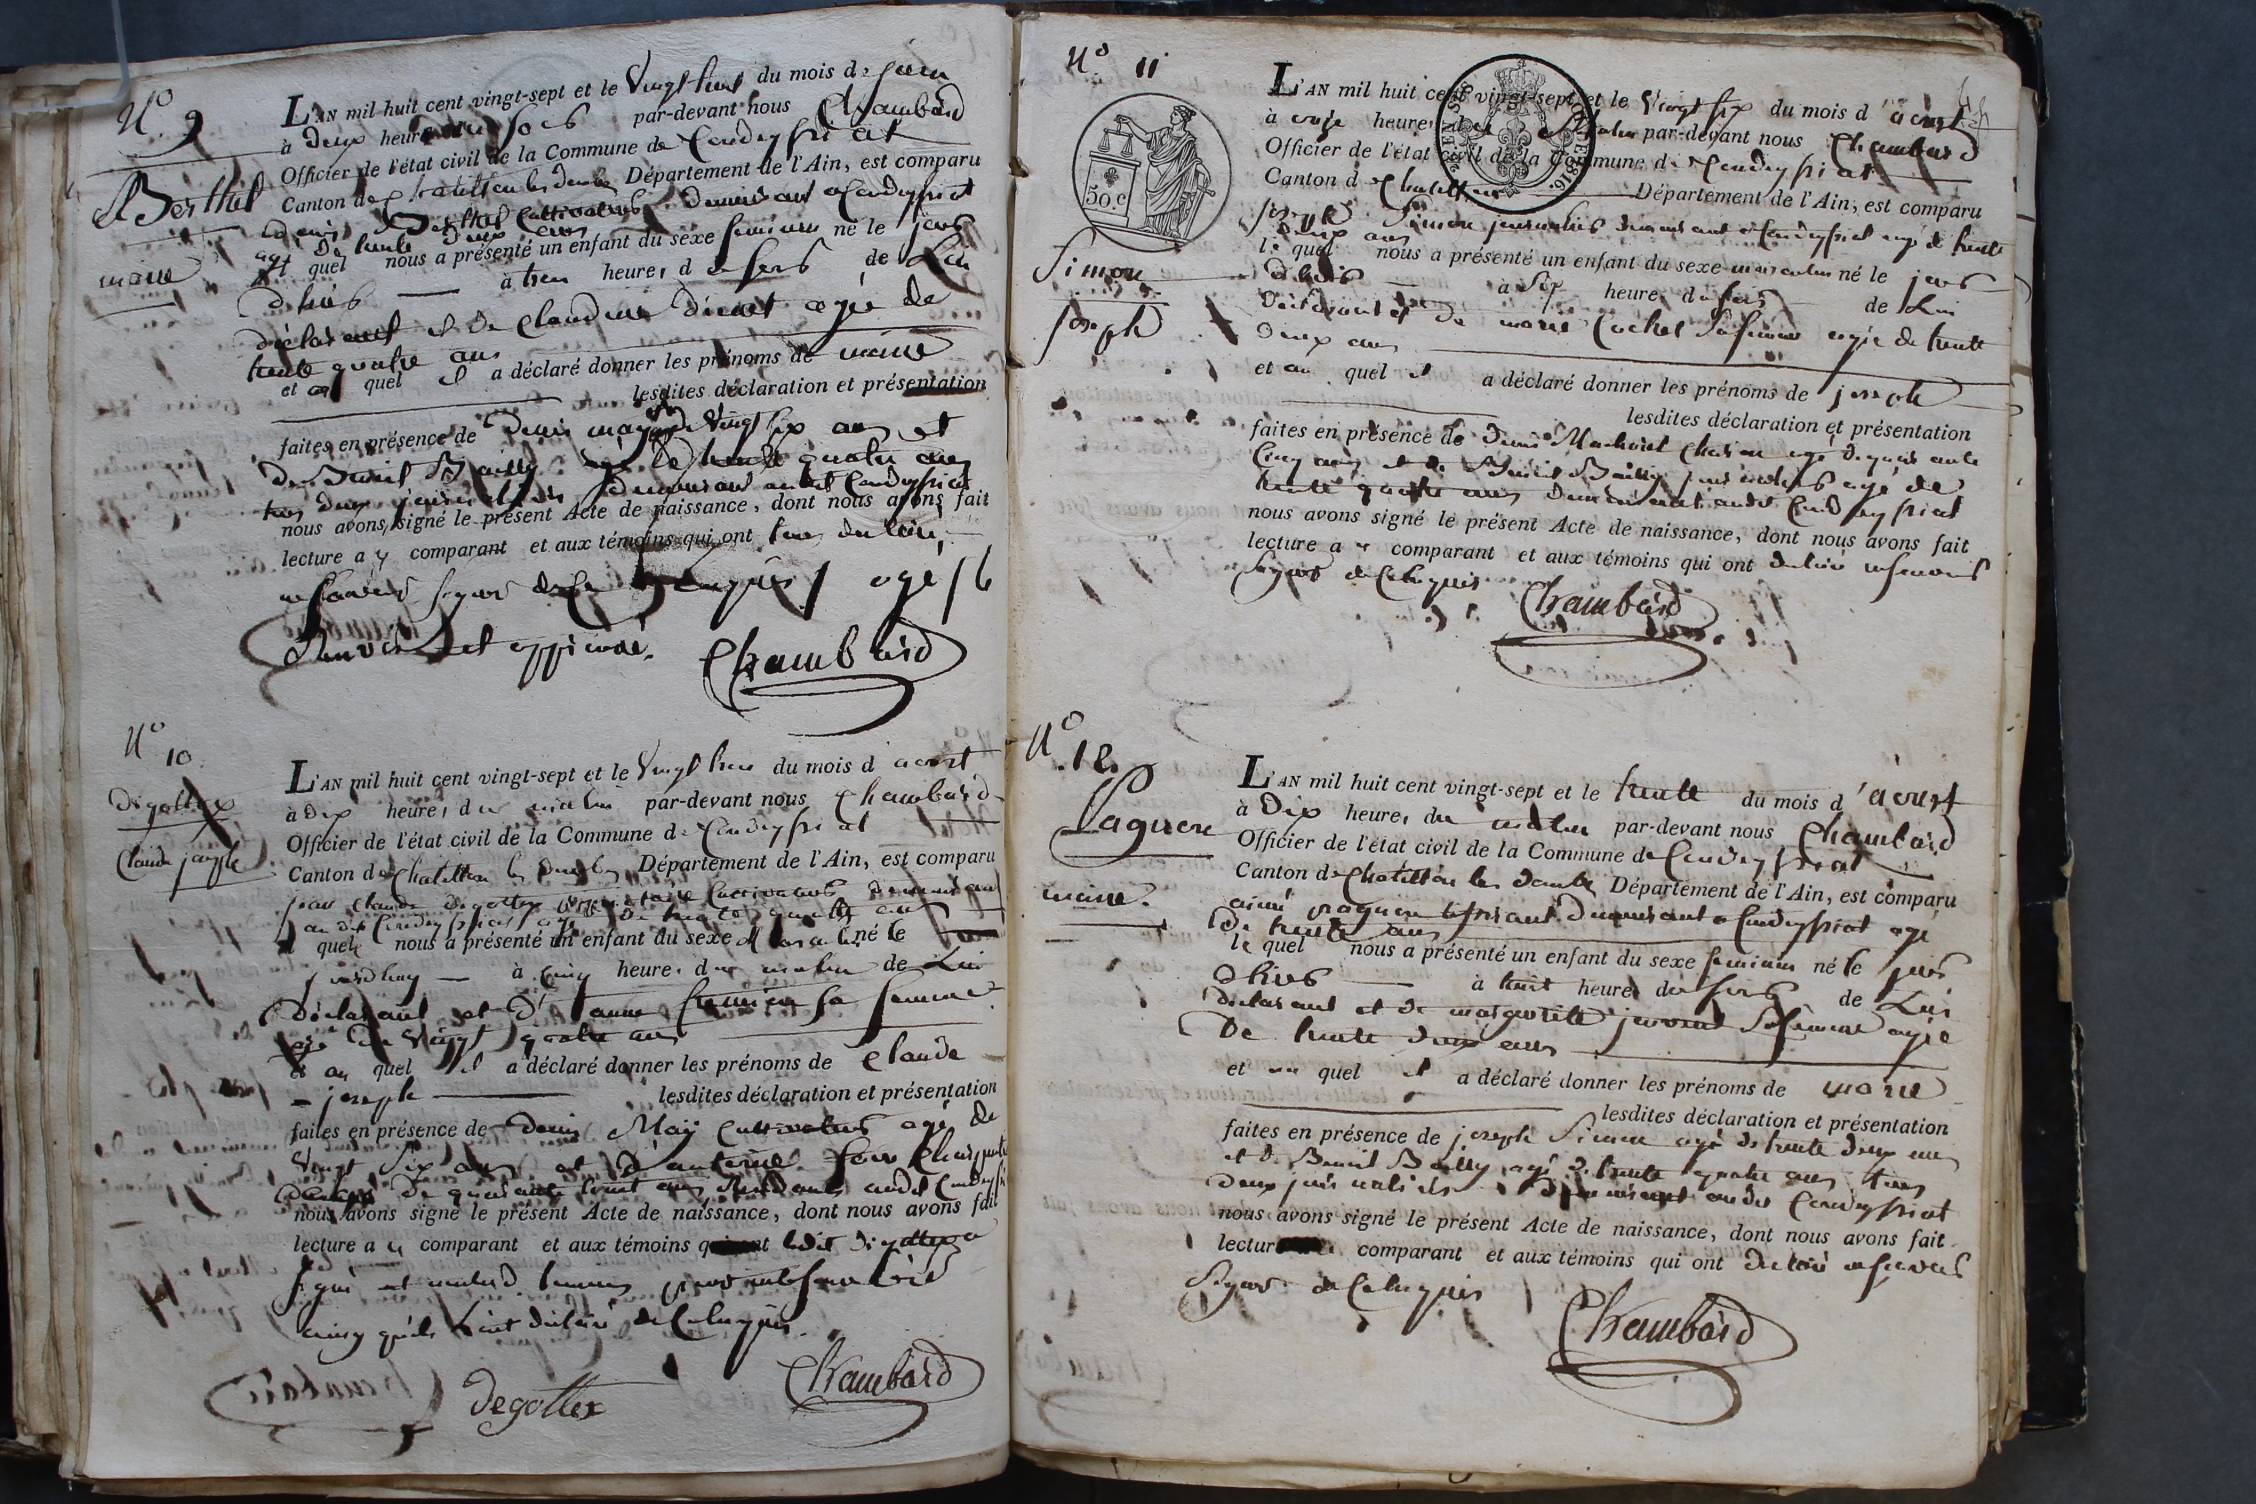 N.o 9
Berthet
marie
L'AN mil huit cent vingt-sept et le Vingt huit du mois de juin
à deux heures du soir par-devant nous Chambard
Officier de l'état civil de la Commune de Condeyssiat
Canton de chatillon les dombes Département de l'Ain, est comparu
Berthet Cultivateur demeurant a Condeyssiat
agé de trente deux ans
le quel nous a présenté un enfant du sexe feminin né le jour
d'hier à trois heures du soir de Lui
déclarant et de Claudine agée de
trente quatre ans
et au quel il a déclaré donner les prénoms de marie
lesdites déclaration et présentation
faites en présence de Denis may agé de Vingt six ans et
de Benoit Bailly agé de trente quatre ans
tous deux journaliers demeurant audit Condeyssiat
nous avons signé le présent Acte de naissance, dont nous avons fait
lecture au comparant et aux témoins qui ont tous déclaré
ne savoir signer de ce requis
et approuvé. Chambard
N.o 10.
Degottex
Claude joseph
L'AN mil huit cent vingt-sept et le Vingt trois du mois d'aoust
à dix heures du matin par-devant nous Chambard
Officier de l'état civil de la Commune de Condeyssiat
Canton de Chatillon les dombes Département de l'Ain, est comparu
jean Claude degottex propriétaire Cultivateur demeurant
au dit Condeyssiat agé de trente quatre ans
le quel nous a présenté un enfant du sexe Masculin né le
jourdhuy à Cinq heures du matin de Lui
Déclarant et d'anne sa femme
agé de Vingt quatre ans
et au quel il a déclaré donner les prénoms de Claude
joseph lesdites déclaration et présentation
faites en présence de denis May Cultivateur agé de
Vingt Six ans et d'antoine
de quarante ans audit
nous avons signé le présent Acte de naissance, dont nous avons fait
lecture au comparant et aux témoins ledit Degottex a
signé et temoins pour ne savoir
ainsy quils l'ont déclaré de Ce requis
degottex Chambard
N.o 11
50.c
TIMBRE
Simon
joseph
L'AN mil huit cent vingt-sept et le Vingt six du mois d'aoust
à onze heures du Matin par-devant nous Chambard
Officier de l'état civil de la Commune de Condeyssiat
Canton de Chatillon Département de l'Ain, est comparu
joseph Simon journalier demeurant a Condeyssiat agé de trente
deux ans
le quel nous a présenté un enfant du sexe masculin né le jour
d'hier à Six heures du soir de Lui
Déclarant et de marie Cochet Sa femme agée de trente
deux ans
et au quel il a déclaré donner les prénoms de joseph
lesdites déclaration et présentation
faites en présence de Denis agé de quarante
Cinq ans et de Benoit Bailly journaliers agé de
trente quatre ans demeurant audit Condeyssiat
nous avons signé le présent Acte de naissance, dont nous avons fait
lecture au comparant et aux témoins qui ont déclaré ne savoir
Signer de Ce requis Chambard
N.o 12.
Paguere
marie
L'AN mil huit cent vingt-sept et le trente du mois d'aoust
à Dix heures du matin par-devant nous Chambard
Officier de l'état civil de la Commune de Condeyssiat
Canton de Chatillon les dombes Département de l'Ain, est comparu
aimé tisserant demeurant a Condeyssiat agé
De trente ans
le quel nous a présenté un enfant du sexe feminin né le jour
d'hier à huit heures du soir de Lui
déclarant et de marguerite Sa femme agée
De trente deux ans
et au quel il a déclaré donner les prénoms de marie
lesdites déclaration et présentation
faites en présence de joseph Simon agé de trente deux ans
et de Benoit Bailly agé de trente quatre ans tous
deux journaliers demeurant audit Condeyssiat
nous avons signé le présent Acte de naissance, dont nous avons fait
lecture comparant et aux témoins qui ont déclaré ne savoir
Signer de Ce requis
Chambard